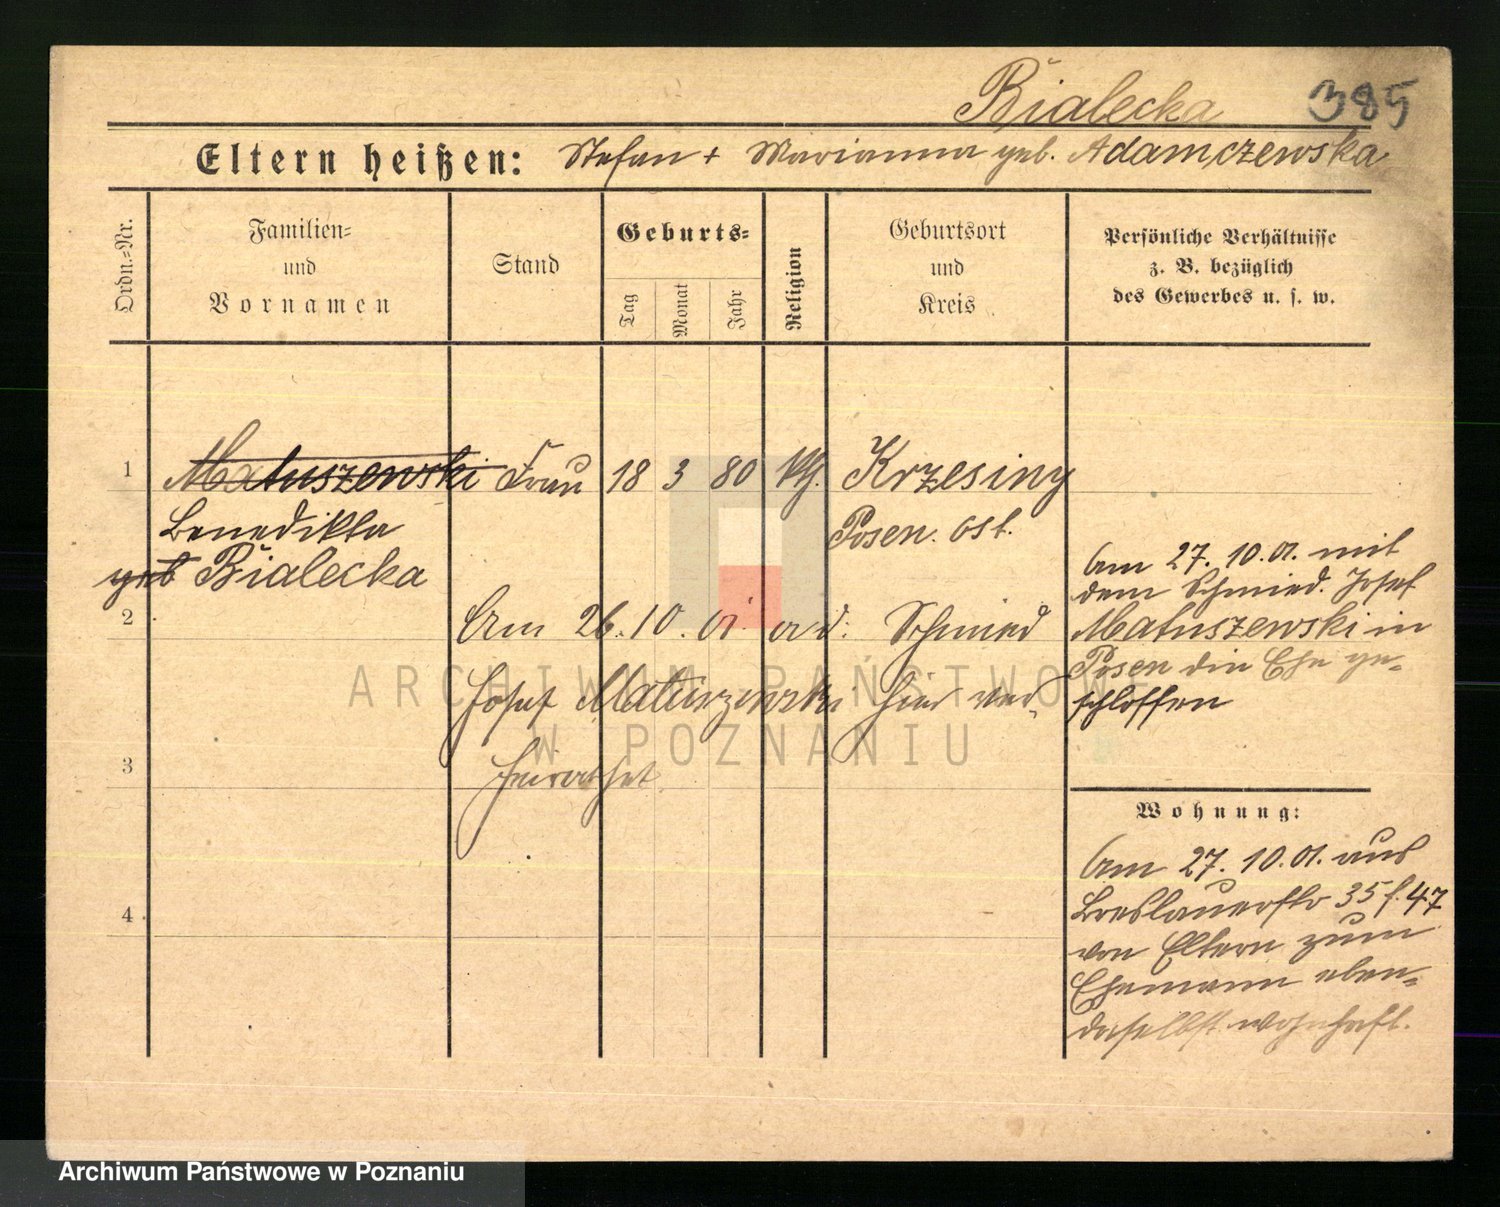 Bialecka 385
Eltern heißen: Stefan + Marianna geb. Adamczewska
Ordn.-Nr.
Familien-
und
Vornamen
Stand
Geburts-
Tag
Monat
Jahr
Religion
Geburtsort
und
Kreis
Persönliche Verhältnisse
z. B. bezüglich
des Gewerbes u. s. w.
1 Matuszewski Frau 18 3 80 kth. Krzesiny
Benedikta Posen. Ost.
geb Bialecka
2
Am 26. 10. 01. ad. Schmied
Josef Matuszewski hier ver-
heirathet
3
4
Am 27. 10. 01. mit
dem Schmied. Josef
Matuszewski in
Posen die Ehe ge-
schlossen
Wohnung:
Am 27. 10. 01. aus
Breslauerstr 35 f. 47
von Eltern zum
Ehemann eben-
daselbst wohnhaft.
ARCHIWUM PAŃSTWOWE
W POZNANIU
Archiwum Państwowe w Poznaniu